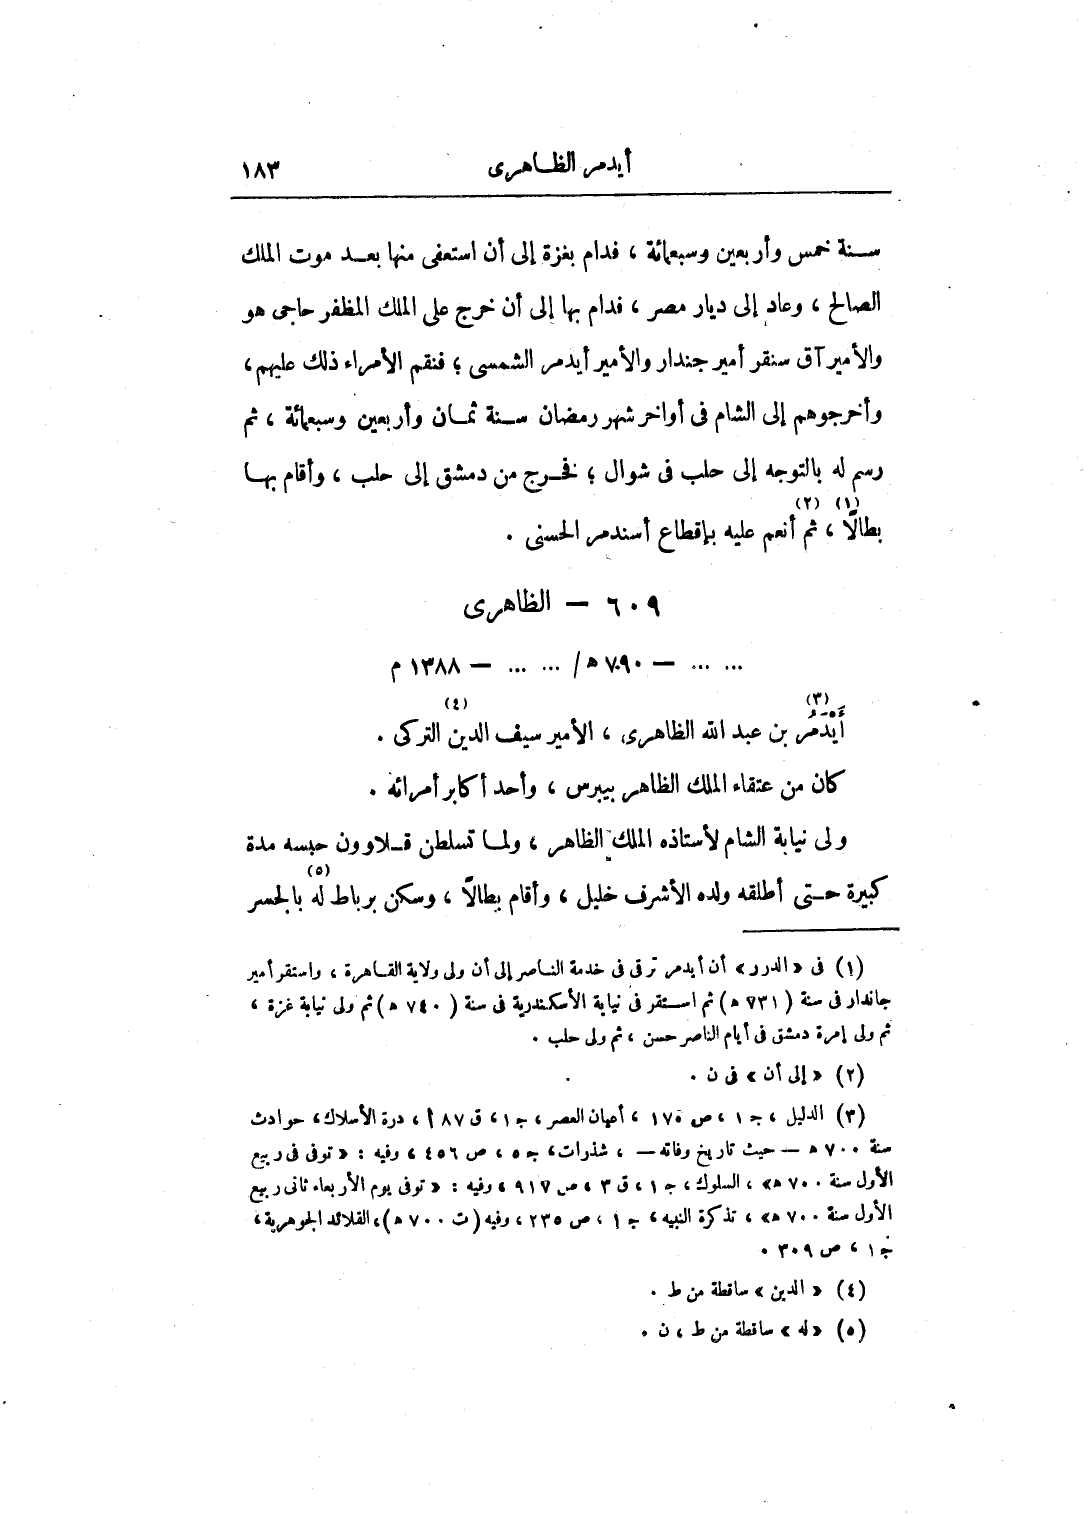 أيدمر الظاهرى ١٨٣
سنة خمس وأربعين وسبعمائة ، فدام بغزة إلى أن استعفى منها بعد موت الملك
الصالح ، وعاد إلى ديار مصر ، فدام بها إلى أن خرج على الملك المظفر حاجى هو
والأمير آق سنقر أمير جندار والأمير أيدمر الشمسى ؛ فنقم الأمراء ذلك عليهم ،
وأخرجوهم إلى الشام فى أواخر شهر رمضان سنة ثمان وأربعين وسبعمائة ، ثم
رسم له بالتوجه إلى حلب فى شوال ؛ فخرج من دمشق إلى حلب ، وأقام بها
بطالًا (١) ، ثم (٢) أنعم عليه بإقطاع أسندمر الحسنى .
٦٠٩ – الظاهرى
... ... – ٧٩٠ ه / ... ... – ١٣٨٨ م
أَيْدَمُر (٣) بن عبد الله الظاهرى ، الأمير سيف الدين (٤) التركى .
كان من عتقاء الملك الظاهر بيبرس ، وأحد أكابر أمرائه .
ولى نيابة الشام لأستاذه الملك الظاهر ، ولما تسلطن قلاوون حبسه مدة
كبيرة حتى أطلقه ولده الأشرف خليل ، وأقام بطالًا ، وسكن برباط له (٥) بالجسر
(١) فى « الدرر » أن أيدمر ترقى فى خدمة الناصر إلى أن ولى ولاية القاهرة ، واستقر أمير
جاندار فى سنة ( ٧٣١ ه ) ثم استقر فى نيابة الأسكندرية فى سنة ( ٧٤٠ ه ) ثم ولى نيابة غزة ،
ثم ولى إمرة دمشق فى أيام الناصر حسن ، ثم ولى حلب .
(٢) « إلى أن » فى ن .
(٣) الدليل ، ج ١ ، ص ١٧٥ ، أعيان العصر ، ج ١ ، ق ٨٧ أ ، درة الأسلاك ، حوادث
سنة ٧٠٠ ه – حيث تاريخ وفاته – ، شذرات ، ج ٥ ، ص ٤٥٦ ، وفيه : « توفى فى ربيع
الأول سنة ٧٠٠ ه » ، السلوك ، ج ١ ، ق ٣ ، ص ٩١٧ ، وفيه : « توفى يوم الأربعاء ثانى ربيع
الأول سنة ٧٠٠ ه » ، تذكرة النبيه ، ج ١ ، ص ٢٣٥ ، وفيه ( ت ٧٠٠ ه ) ، القلائد الجوهرية ،
ج ١ ، ص ٣٠٩ .
(٤) « الدين » ساقطة من ط .
(٥) « له » ساقطة من ط ، ن .